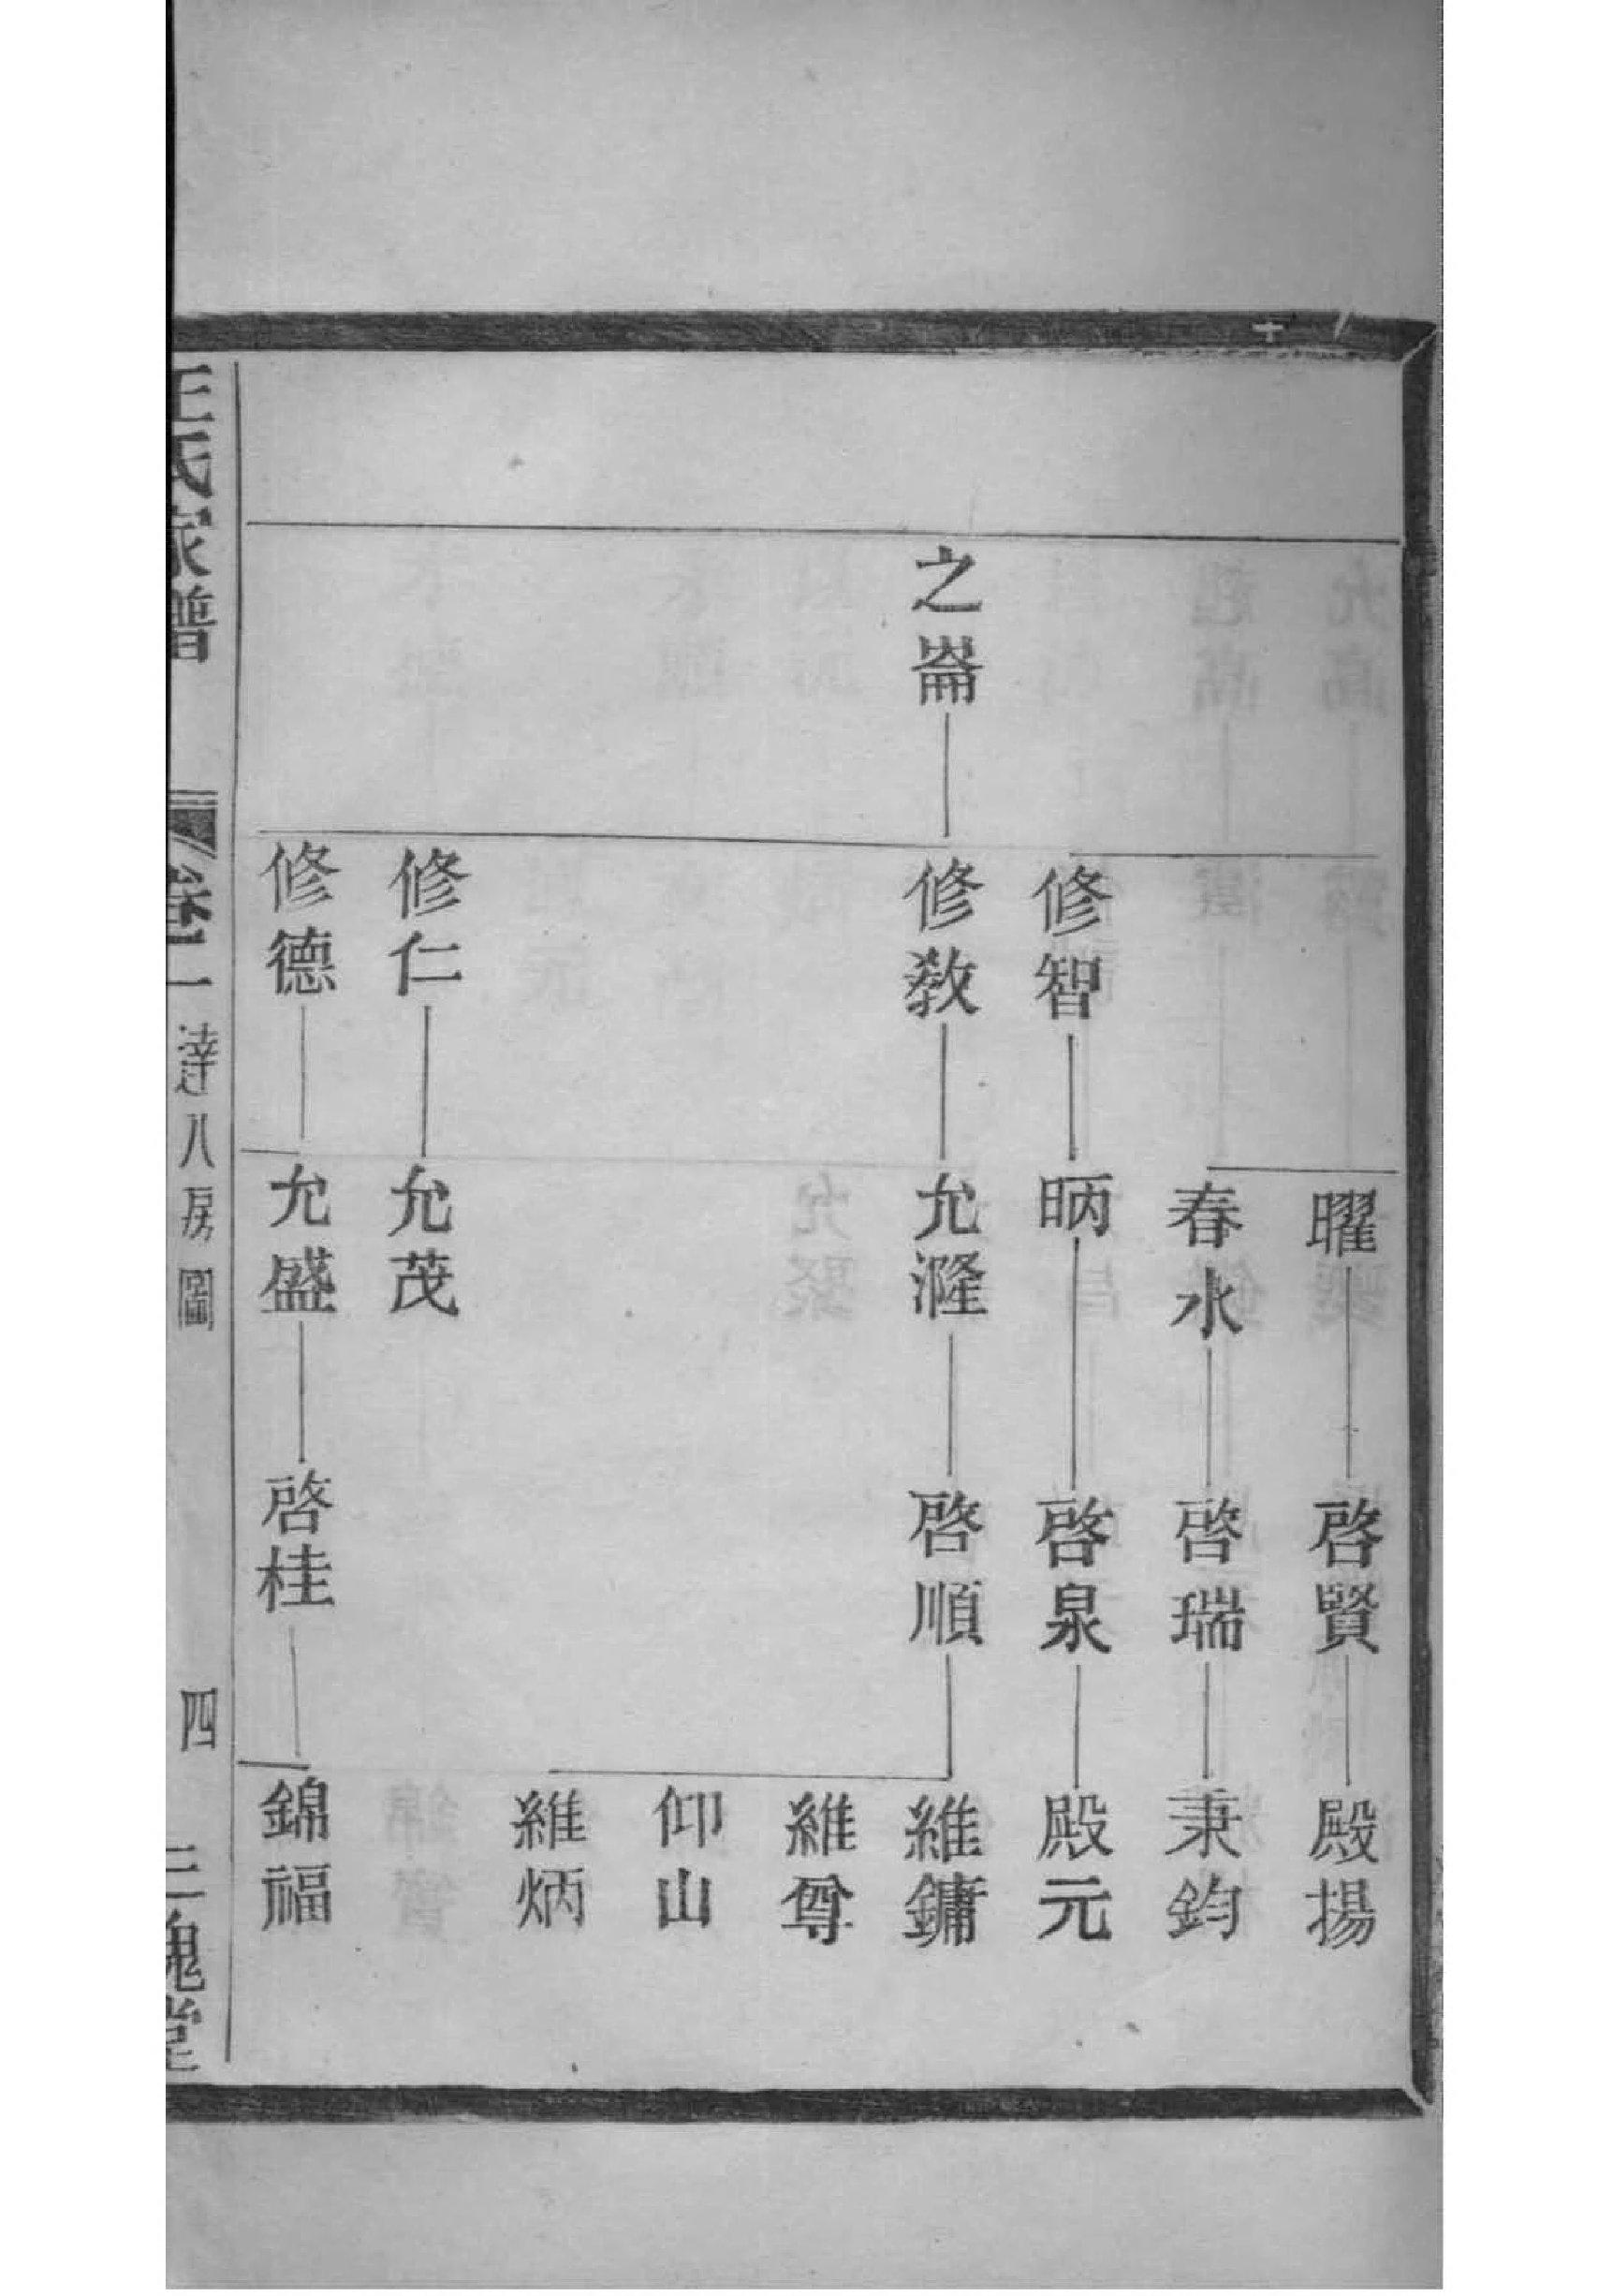 曜 啓賢 殿揚
春水 啓瑞 秉鈞
修智 昞 啓泉 殿元
之崙 修教 允漋 啓順 維鏞
維尊
仰山
維炳
修仁 允茂
修德 允盛 啓桂 錦福
王氏家譜 卷二 達八房圖 四 三槐堂